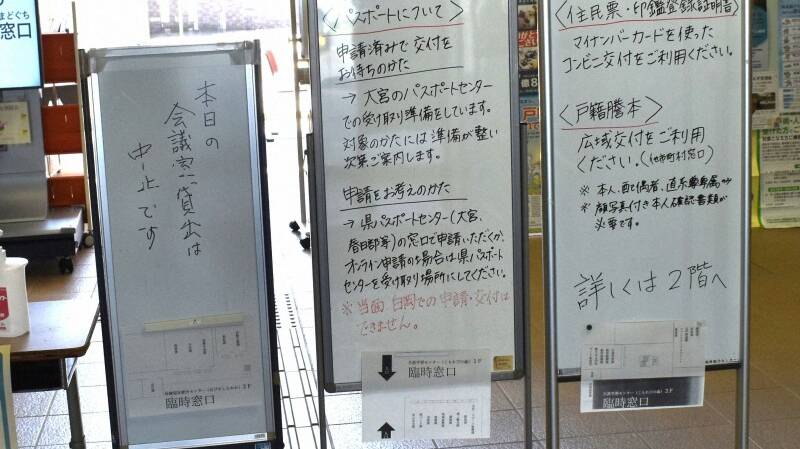 まどぐち
窓口
本日の
会議室貸出は
中止です
臨時窓口
パスポートについて
申請済みで交付を
お待ちのかた
→ 大宮のパスポートセンター
での受け取り準備をしています。
対象のかたには準備が整い
次第ご案内します。
申請をお考えのかた
→ 県パスポートセンター(大宮、
春日部等)の窓口で申請いただくか、
オンライン申請の場合は県パスポート
センターを受け取り場所にしてください。
※当面 白岡での申請・交付は
できません。
2F
臨時窓口
〈住民票・印鑑登録証明書〉
マイナンバーカードを使った
コンビニ交付をご利用ください。
〈戸籍謄本〉
広域交付をご利用
ください。(他市町村窓口)
※ 本人、配偶者、直系尊卑属
※ 顔写真付き本人確認書類が
必要です。
詳しくは2階へ
2F
臨時窓口